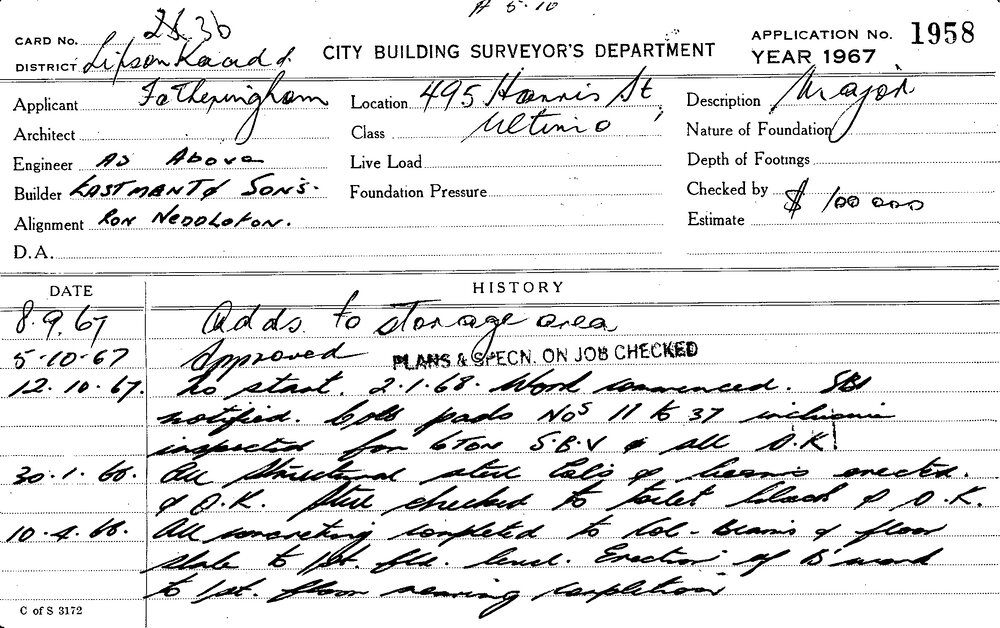 A 5.10
CARD No. 2S3b
CITY BUILDING SURVEYOR'S DEPARTMENT
APPLICATION No. 1958
DISTRICT Lipson Kaad &
YEAR 1967
Applicant Fotheringham
Location 495 Harris St,
Description Major
Architect
Class Ultimo
Nature of Foundation
Engineer As Above
Live Load
Depth of Footings
Builder EASTMENT & SON'S.
Foundation Pressure
Checked by
Alignment RON NEDDLOTON.
Estimate $ 100 000
D.A.
DATE HISTORY
8.9.67 Adds. to storage area
5-10-67 Approved PLANS & SPECN. ON JOB CHECKED
12.10.67. No start. 2.1.68. Work commenced. SBI
notified. Cols pads Nos 11 to 37 inclusive
inspected for 6 TON S.B.V & all O.K.
30.1.68. All structural steel Cols & beams erected.
& O.K. Steel checked to toilet block & O.K.
10.4.68. All concreting completed to Col-Beams & floor
slabs to 1st. flr. level. Erection of B'work
to 1st. floor nearing completion
C of S 3172